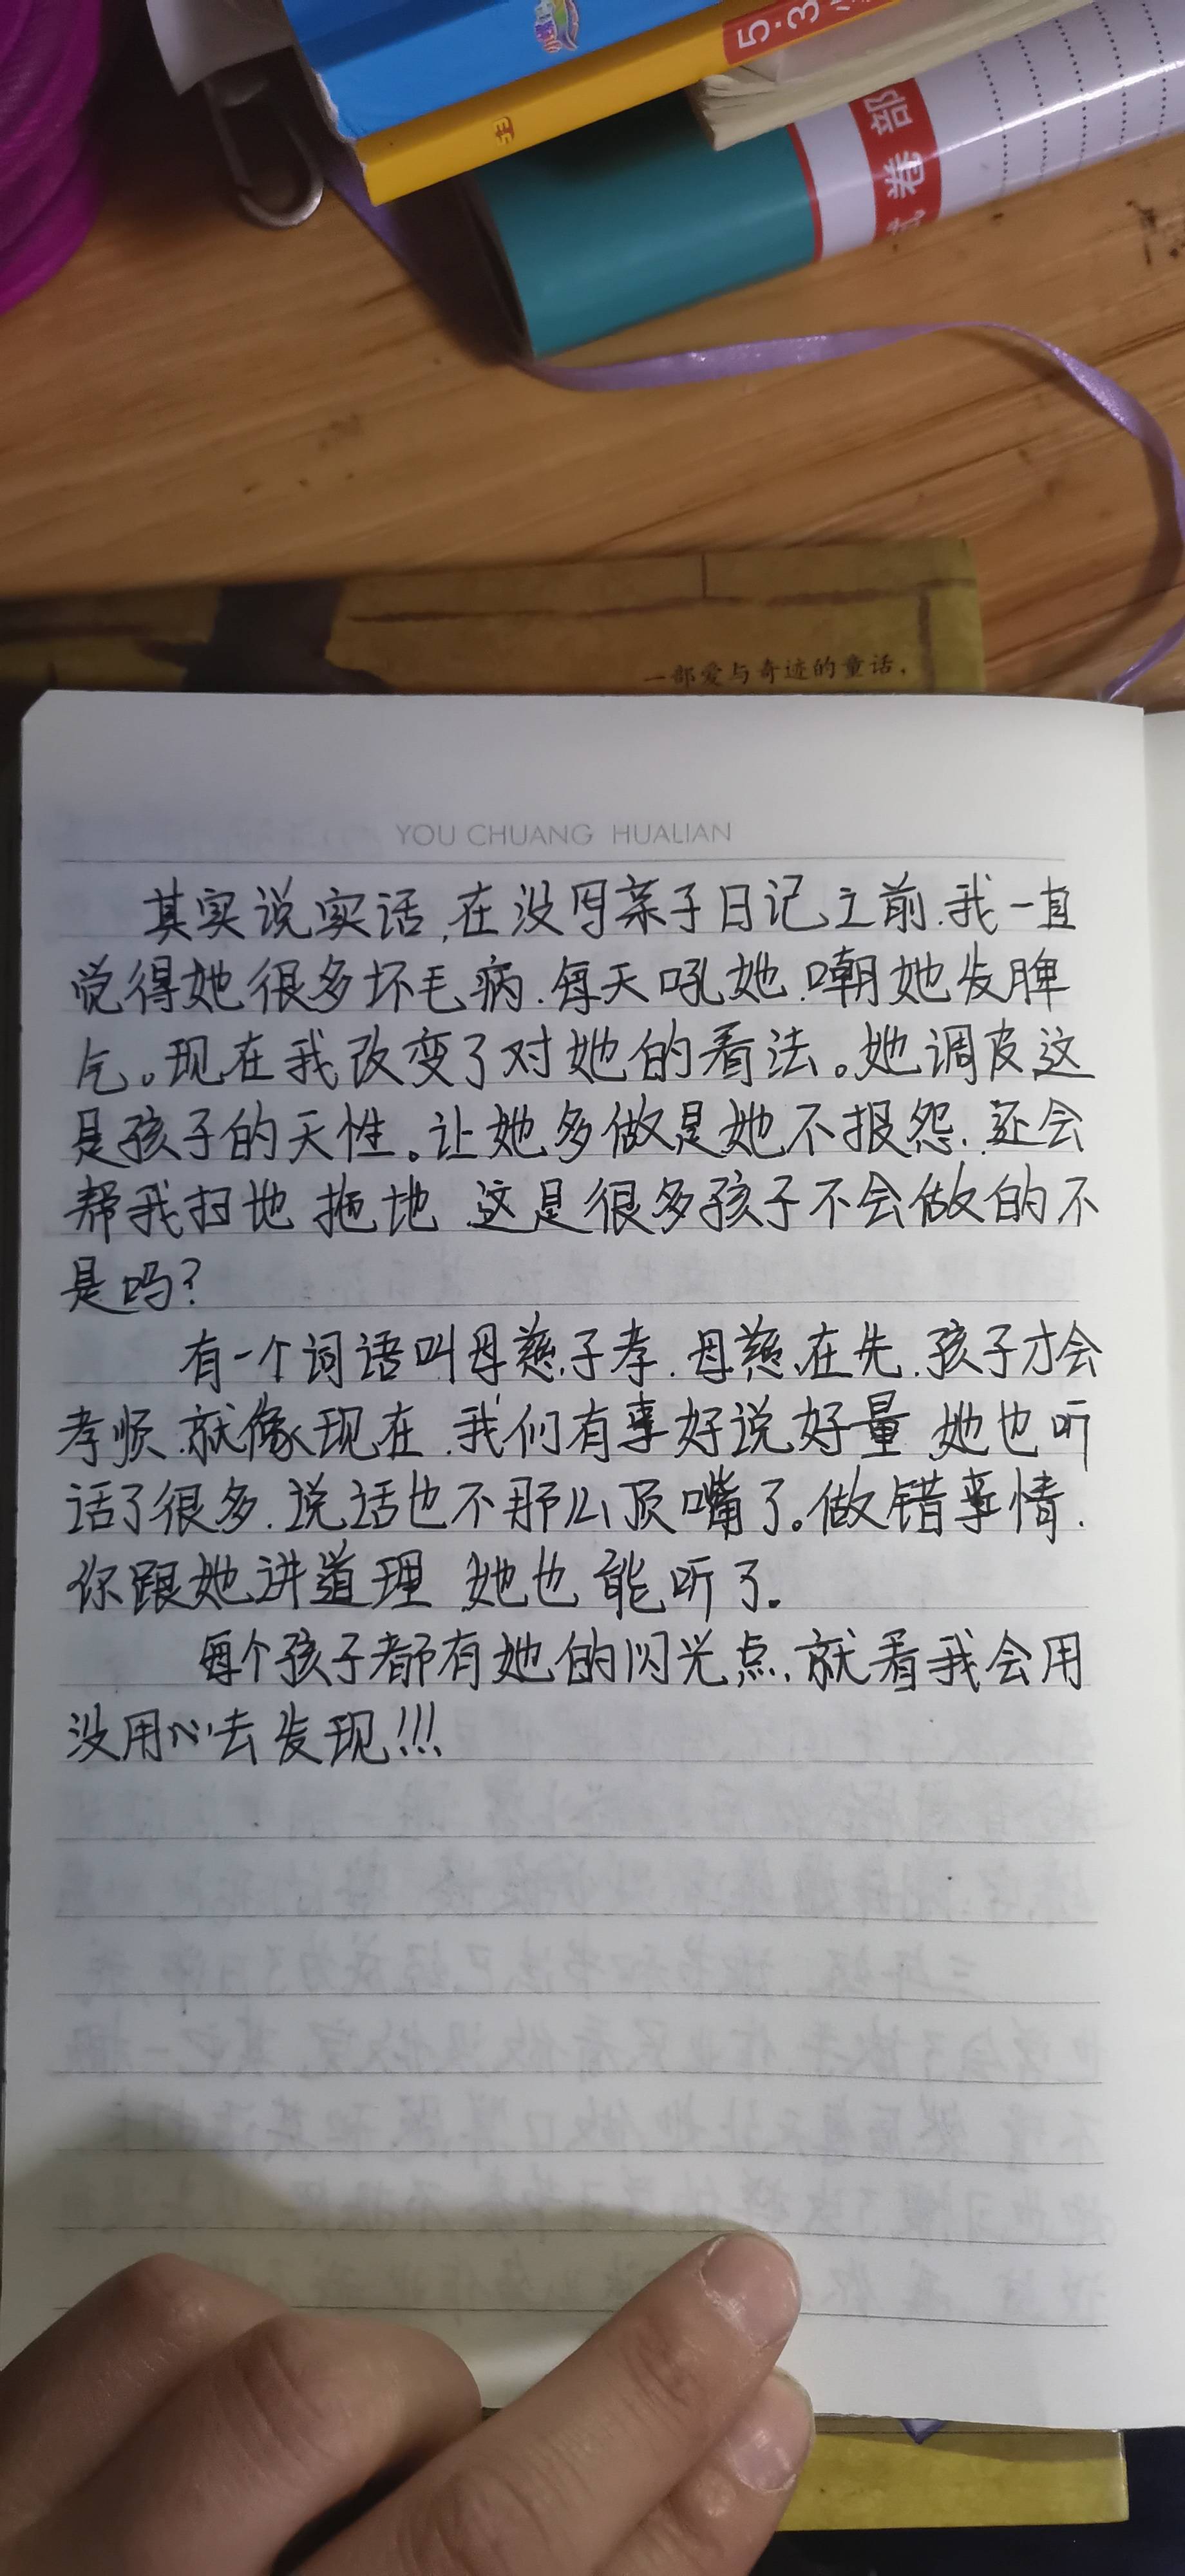 5·3
试卷部
一部爱与奇迹的童话，
YOU CHUANG HUALIAN
其实说实话,在没写亲子日记之前.我一直
觉得她很多坏毛病.每天吼她.嘲她发脾
气。现在我改变了对她的看法。她调皮这
是孩子的天性。让她多做是她不报怨.还会
帮我扫地 拖地 .这是很多孩子不会做的不
是吗?
有一个词语叫母慈子孝.母慈在先.孩子才会
孝顺.就像现在.我们有事好说好量 她也听
话了很多.说话也不那么顶嘴了。做错事情.
你跟她讲道理 她也能听了.
每个孩子都有她的闪光点.就看我会用
没用心去发现!!!